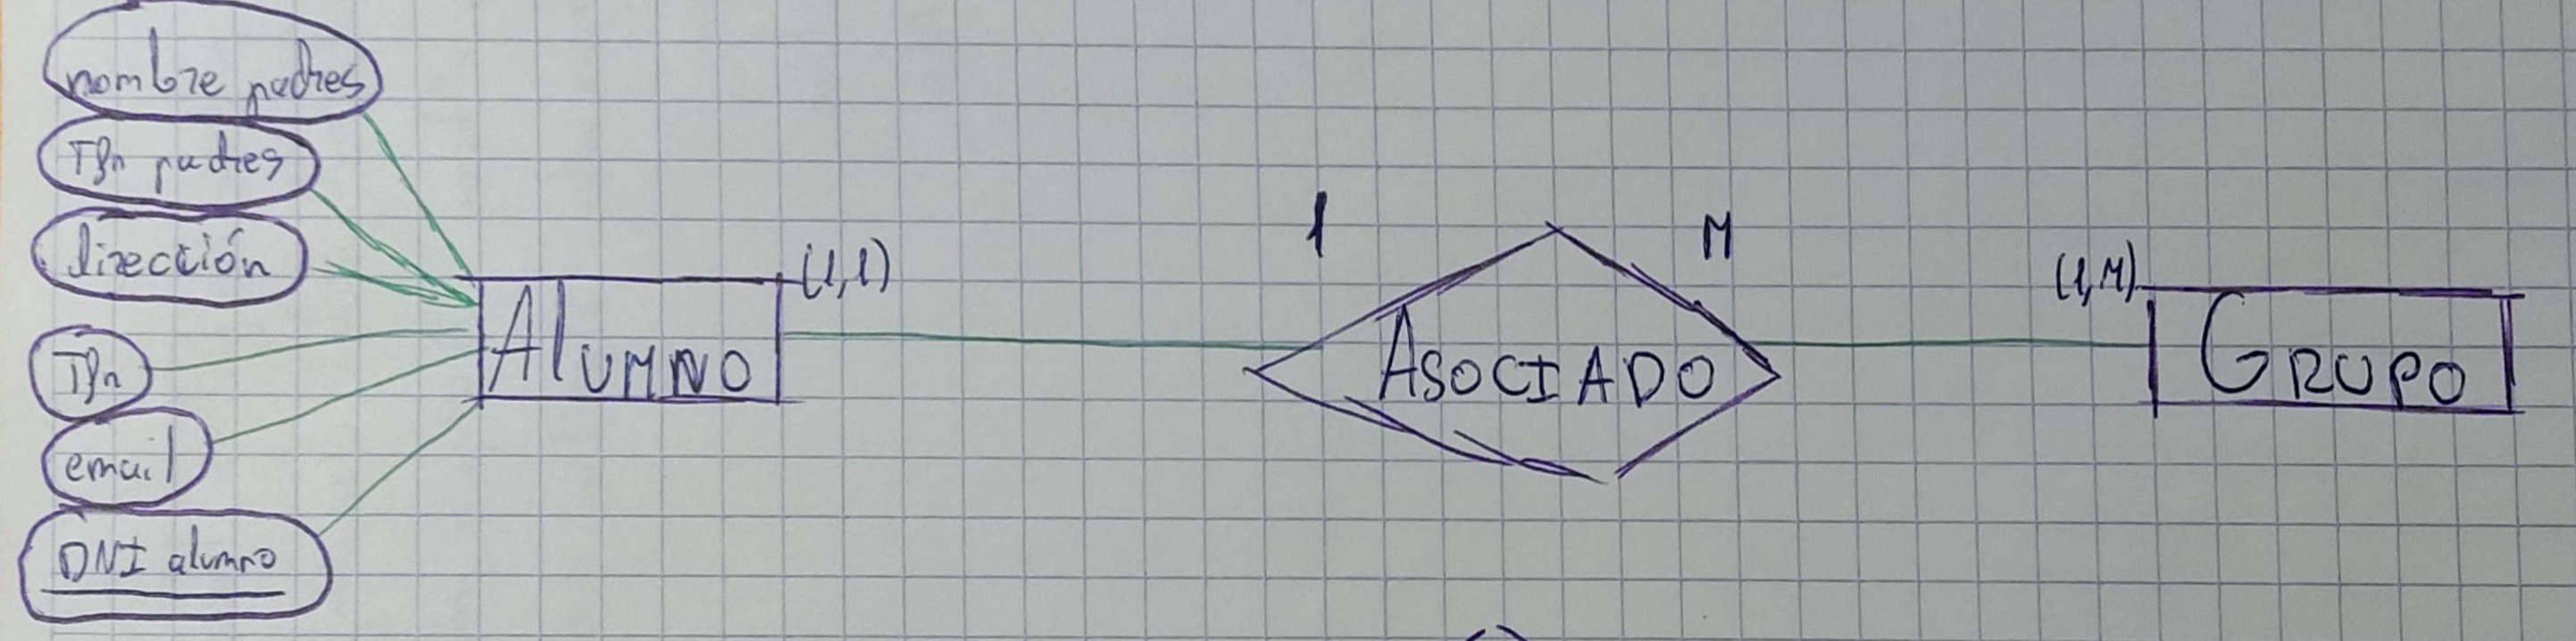 nombre padres
Tfn padres
dirección
Tfn
email
DNI alumno
ALUMNO
(1,1)
1
ASOCIADO
M
(1,M)
GRUPO